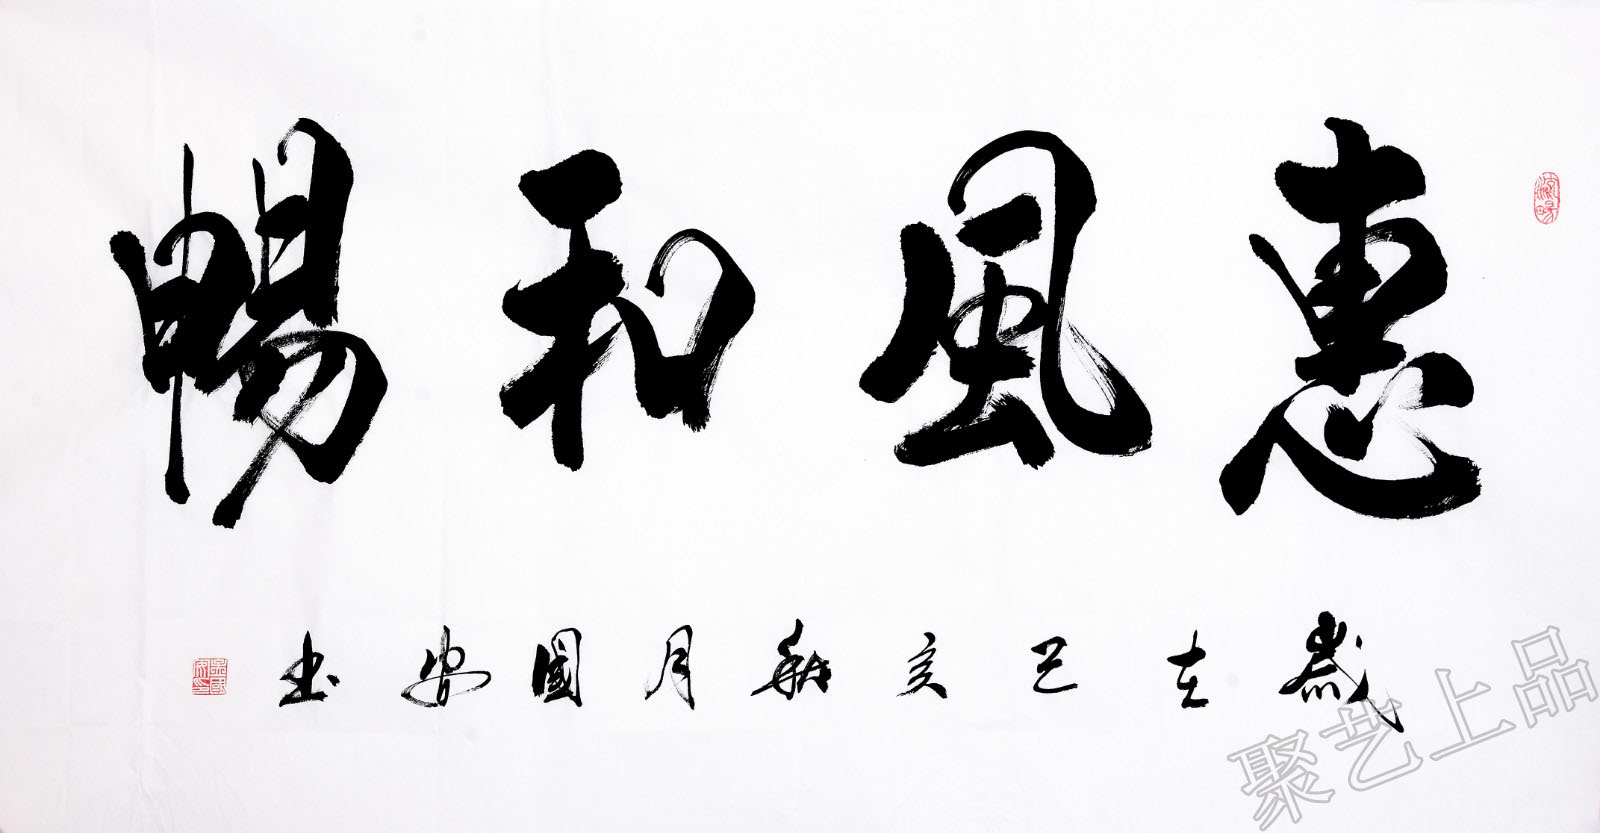 惠風和暢
歲在己亥秋月國安書
聚艺上品